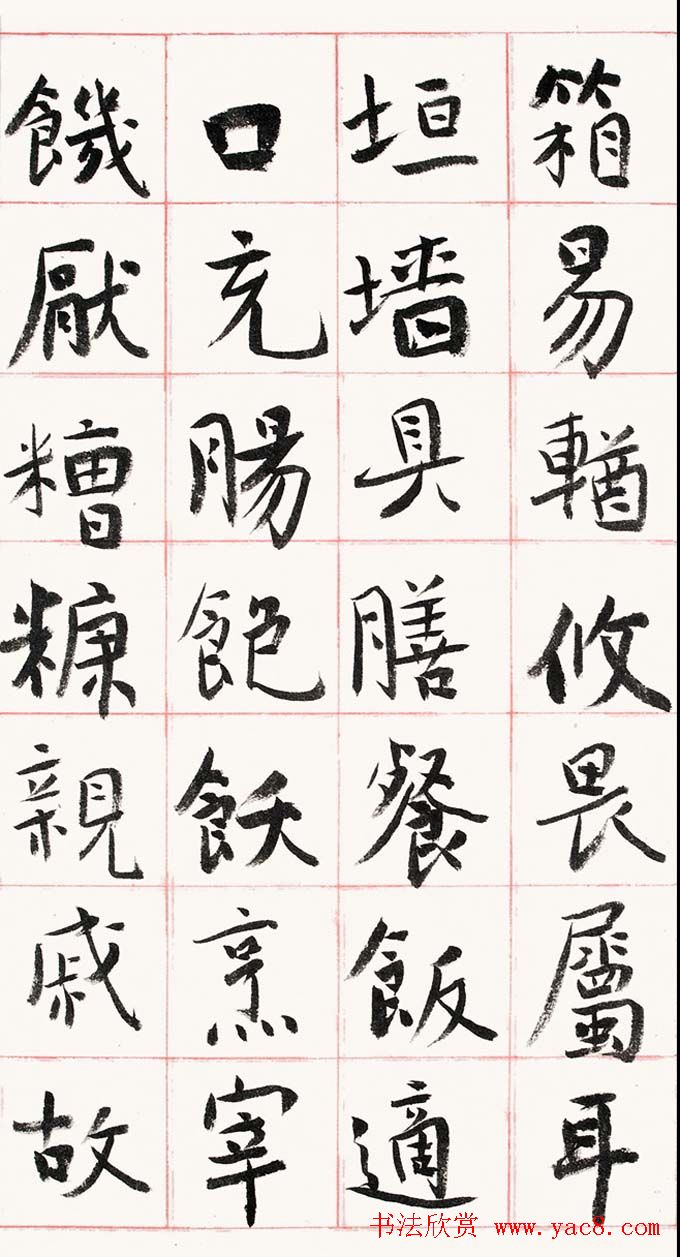 箱易輶攸畏屬耳
垣墙具膳餐飯適
口充腸飽飫烹宰
饑厭糟糠親戚故
书法欣赏 www.yac8.com